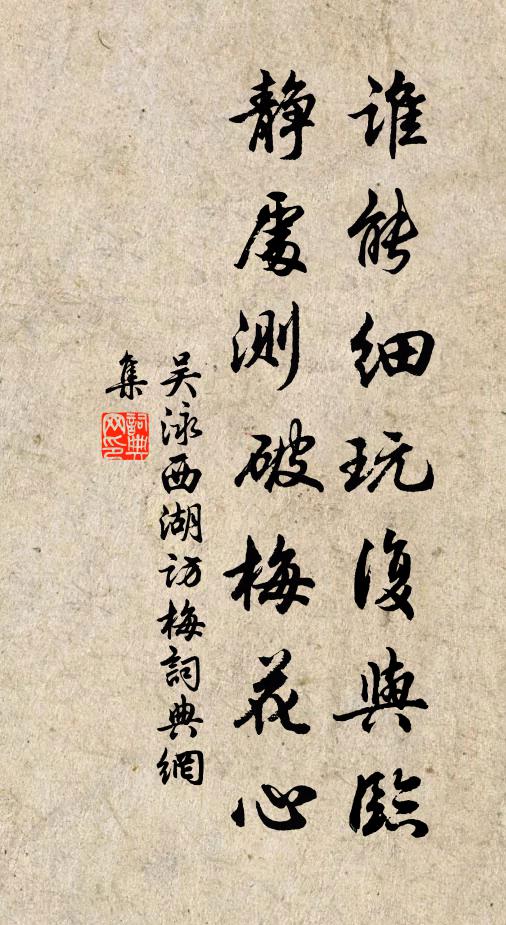 谁能细玩復與臨
静處测破梅花心
吴泳西湖访梅詞典網
集
詞典
网印